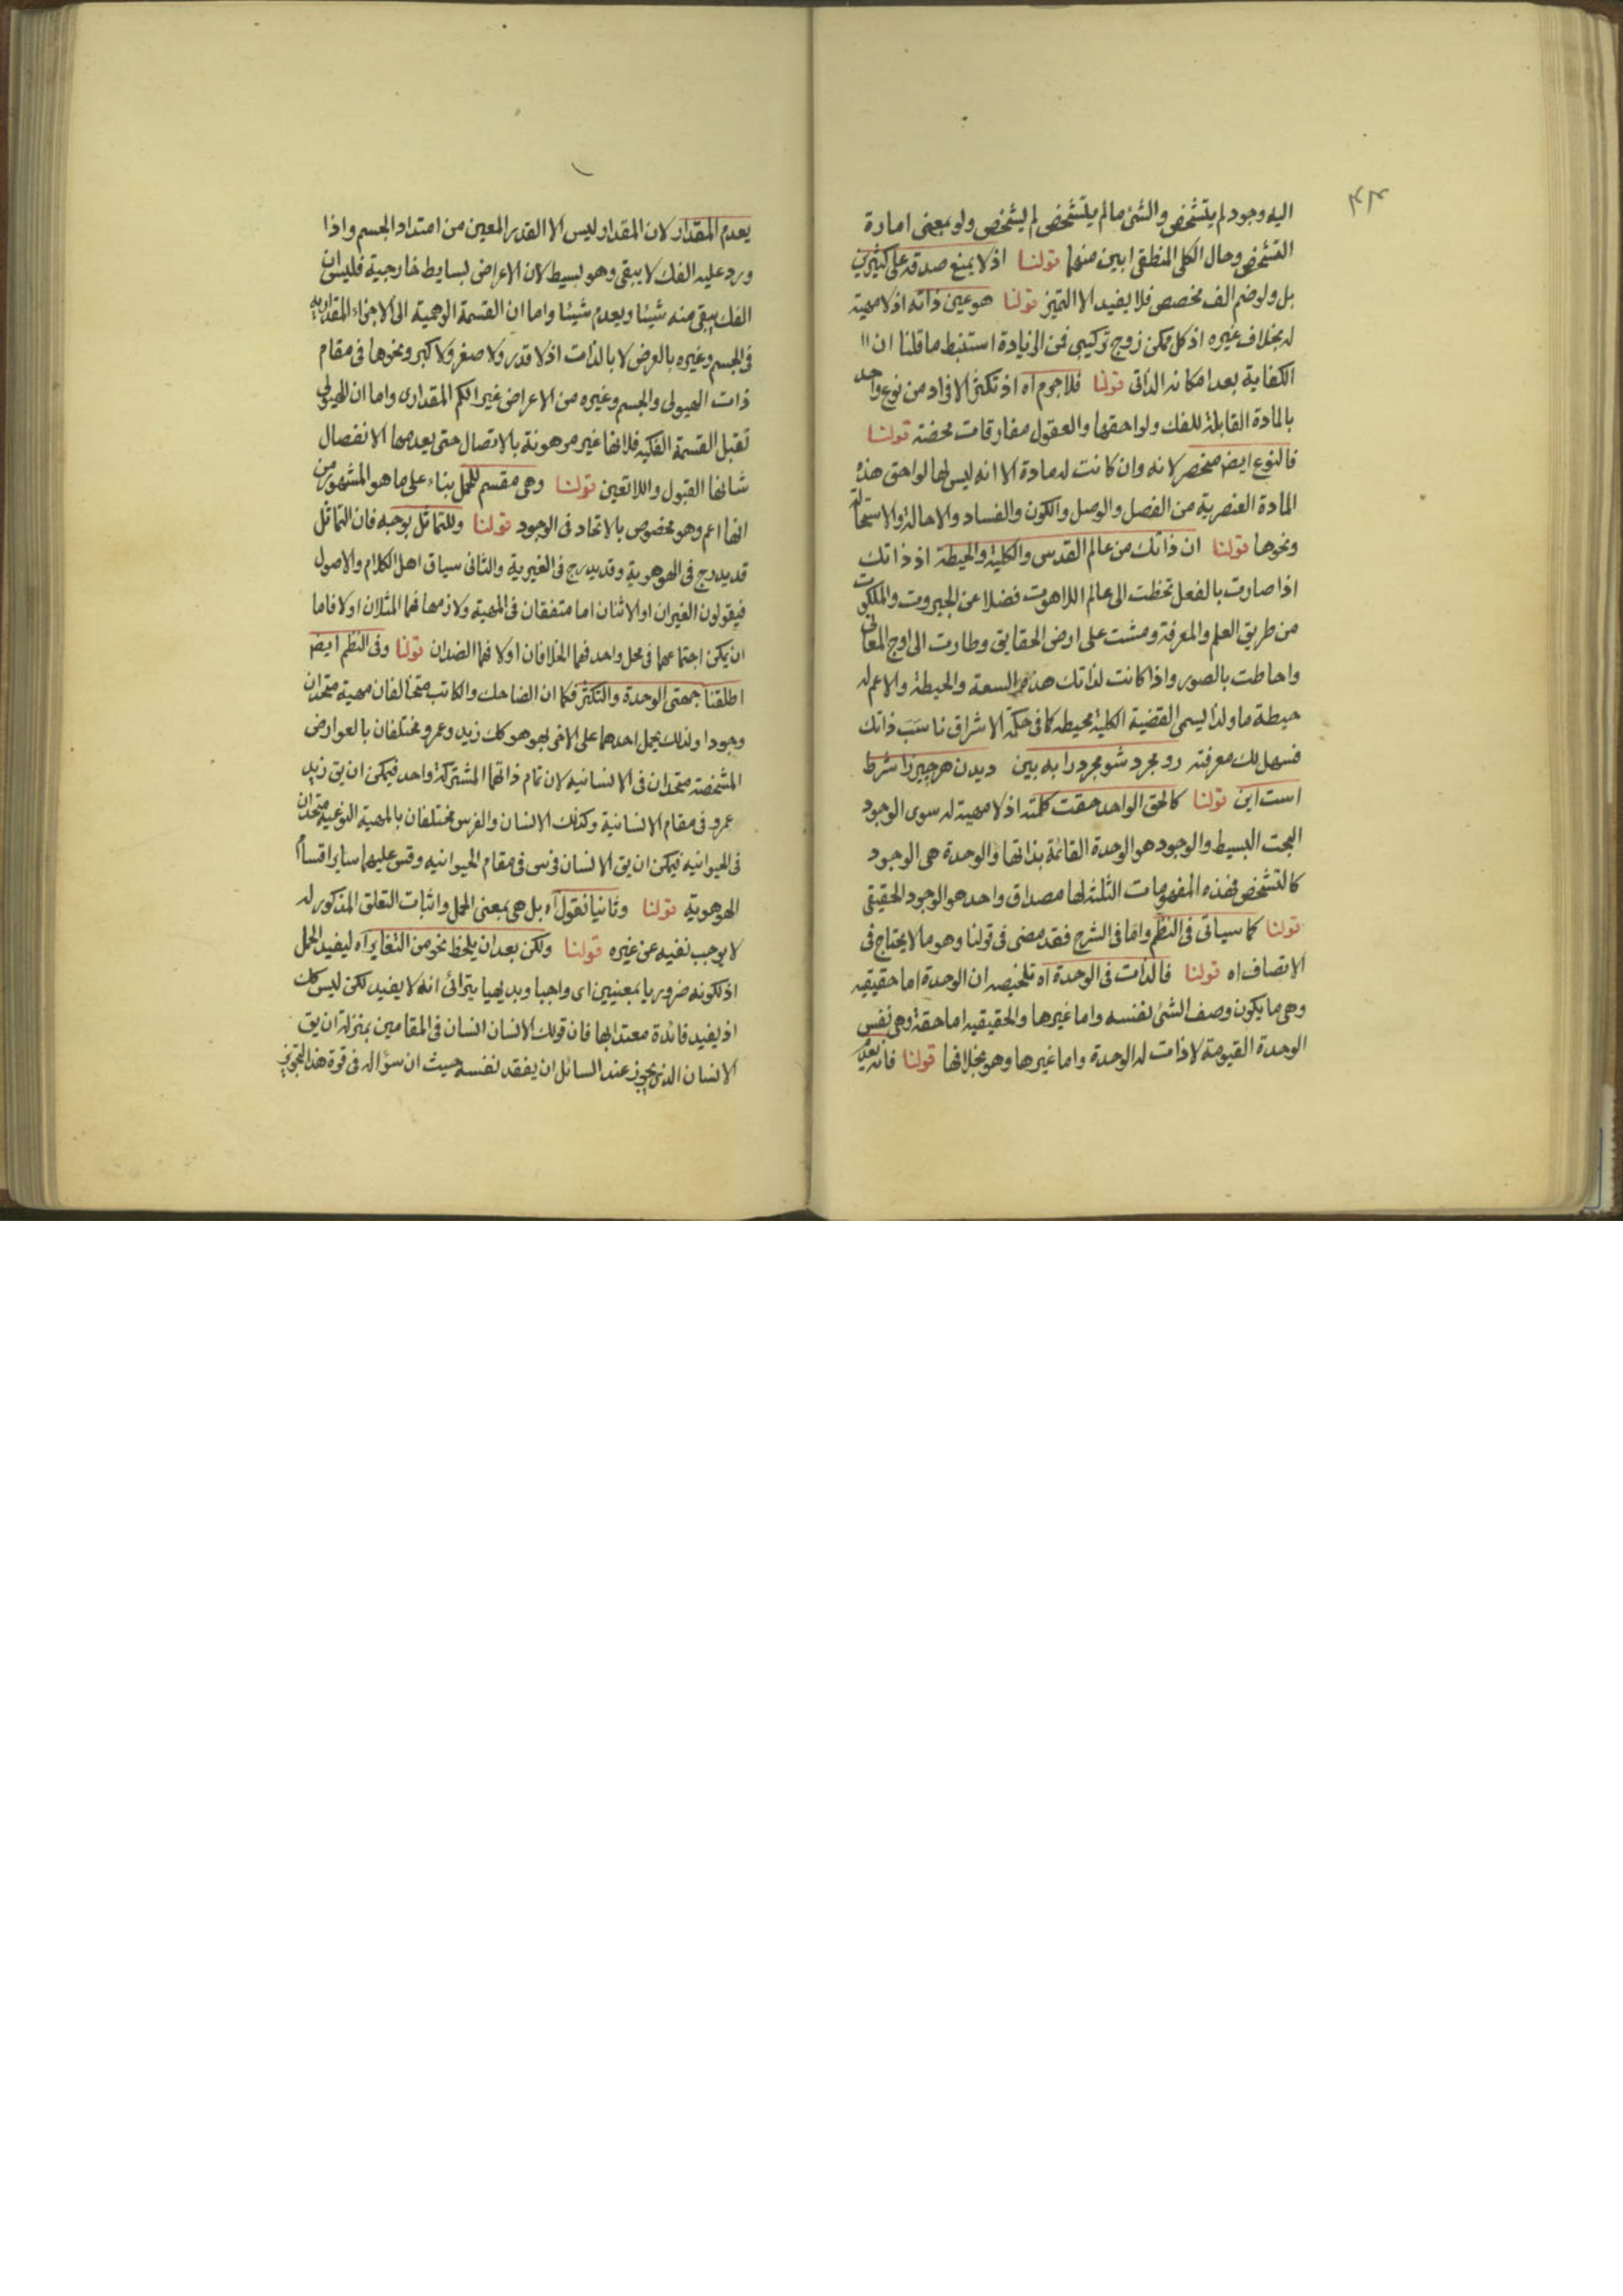 ۴۴
اليه وجود لم يتشخص والشئ ما لم يتشخص لم يشخص ولو بمعنى امارة
التشخص وحال الكلى المنطقى ابين منهما قولنا اذ لا يمنع صدقه على كثيرين
بل ولو ضم الف مخصص فلا يفيد الا التميز قولنا هو عين ذاته اذ لا مهية
له بخلاف غيره اذ كل ممكن زوج تركيبى فمن الزيادة استنبط ما قلنا ان
الكفاية بعد امكانه الذاتى قولنا فلا جرم اه اذ تكثر الافراد من نوع واحد
بالمادة القابلة للفك ولواحقها والعقول مفارقات محضة قولنا
فالنوع ايض منحصر لانه وان كانت له مادة الا انه ليس لها لواحق هذه
المادة العنصرية من الفصل والوصل والكون والفساد والاحالة والاستحالة
ونحوها قولنا ان ذاتك من عالم القدس والكلية والحيطة اذ ذاتك
اذا صارت بالفعل تخطت الى عالم اللاهوت فضلا عن الجبروت والملكوت
من طريق العلم والمعرفة ومشت على ارض الحقايق وطارت الى اوج المعانى
واحاطت بالصور واذا كانت لذاتك هذه السعة والحيطة والاعم له
حيطة ما ولذا يسمى القضية الكلية محيطه كما فى حكمة الاشراق ناسَبَ ذاتك
فسهل لك معرفته رو مجرد شو مجرد را به بين ديدن هر چيز را شرط
است اين قولنا كالحق الواحد حقت كلمته اذ لا مهية له سوى الوجود
البحت البسيط والوجود هو الوحدة القائمة بذاتها والوحدة هى الوجود
كالتشخص فهذه المفهومات الثلثة لها مصداق واحد هو الوجود الحقيقى
قولنا كما سياتى فى النظم واما فى الشرح فقد مضى فى قولنا وهو ما لا يحتاج فى
الاتصاف اه قولنا فالذات فى الوحدة اه تلخيصه ان الوحدة اما حقيقيه
وهى ما يكون وصف الشئ لنفسه واما غيرها والحقيقيه اما حقة وهى نفس
الوحدة القيومة لا ذات له الوحدة واما غيرها وهو بخلافها قولنا فانه
يعدم المقدار لان المقدار ليس الا القدر المعين من امتداد الجسم واذا
ورد عليه الفك لا يبقى وهو بسيط لان الاعراض بسايط خارجية فليس ان
الفك يبقى منه شيئا ويعدم شيئا واما ان القسمة الوهمية الى الاجزاء المقداريه
فى الجسم وغيره بالعرض لا بالذات اذ لا قدر ولا صغر ولا كبر ونحوها فى مقام
ذات الهيولى والجسم وغيره من الاعراض غير الكم المقدارى واما ان الهيولى
تقبل القسمة الفكيه فلانها غير مرهونة بالاتصال حتى يعدمها الانفصال
شانها القبول واللاتعين قولنا وهى مقسم للحمل بناء على ما هو المشهور من
انها اعم وهو مخصوص بالاتحاد فى الوجود قولنا وللتماثل بوجه فان التماثل
قد يدرج فى الهوهوية وقد يدرج فى الغيرية والثانى سياق اهل الكلام والاصول
فيقولون الغيران او الاثنان اما متفقان فى المهية ولازمها فهما المثلان اولا فاما
ان يمكن اجتماعهما فى محل واحد فهما الخلافان اولا فهما الضدان قولنا وفى النظم ايض
اطلقنا جهتى الوحدة والتكثر فكما ان الضاحك والكاتب متخالفان مهية متحدان
وجودا ولذلك يحمل احدهما على الاخر بهو هو كك زيد وعمرو مختلفان بالعوارض
المشخصة متحدان فى الانسانيه لان تمام ذاتهما المشتركة واحد فيمكن ان يق زيد
عمرو فى مقام الانسانية وكذلك الانسان والفرس مختلفان بالمهية النوعية متحدان
فى الحيوانيه فيمكن ان يق الانسان فرس فى مقام الحيوانيه وقس عليهما ساير اقسام
الهوهوية قولنا وثانيا نقول اه بل هى بمعنى الحمل واثبات التعلق المذكور له
لا يوجب نفيه عن غيره قولنا ولكن بعد ان يلحظ نحو من التغاير اه ليفيد الحمل
اذ لكونه ضروريا بمعنيين اى واجبا وبديهيا يترائى انه لا يفيد لكن ليس كك
اذ يفيد فائدة معتدا بها فان قولك الانسان انسان فى المقامين بمنزلة ان يق
الانسان الذى يجوز عند السائل ان يفقد نفسه حيث ان سؤاله فى قوة هذا التجويز